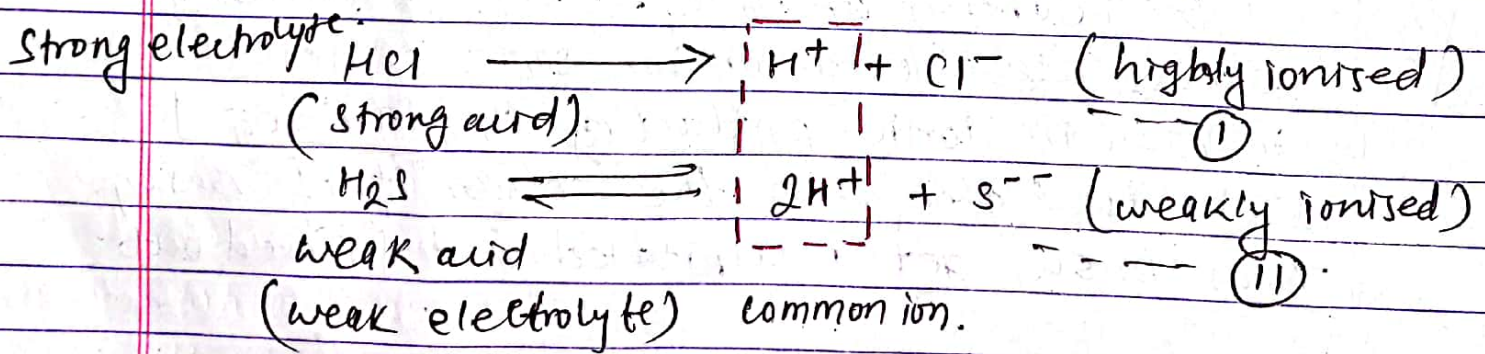 Strong electrolyte.
HCl ⟶ H⁺ + Cl⁻ (highly ionised)
(strong acid). ---Ⓘ
H₂S ⇌ 2H⁺ + S⁻⁻ (weakly ionised)
weak acid ---(II).
(weak electrolyte) common ion.